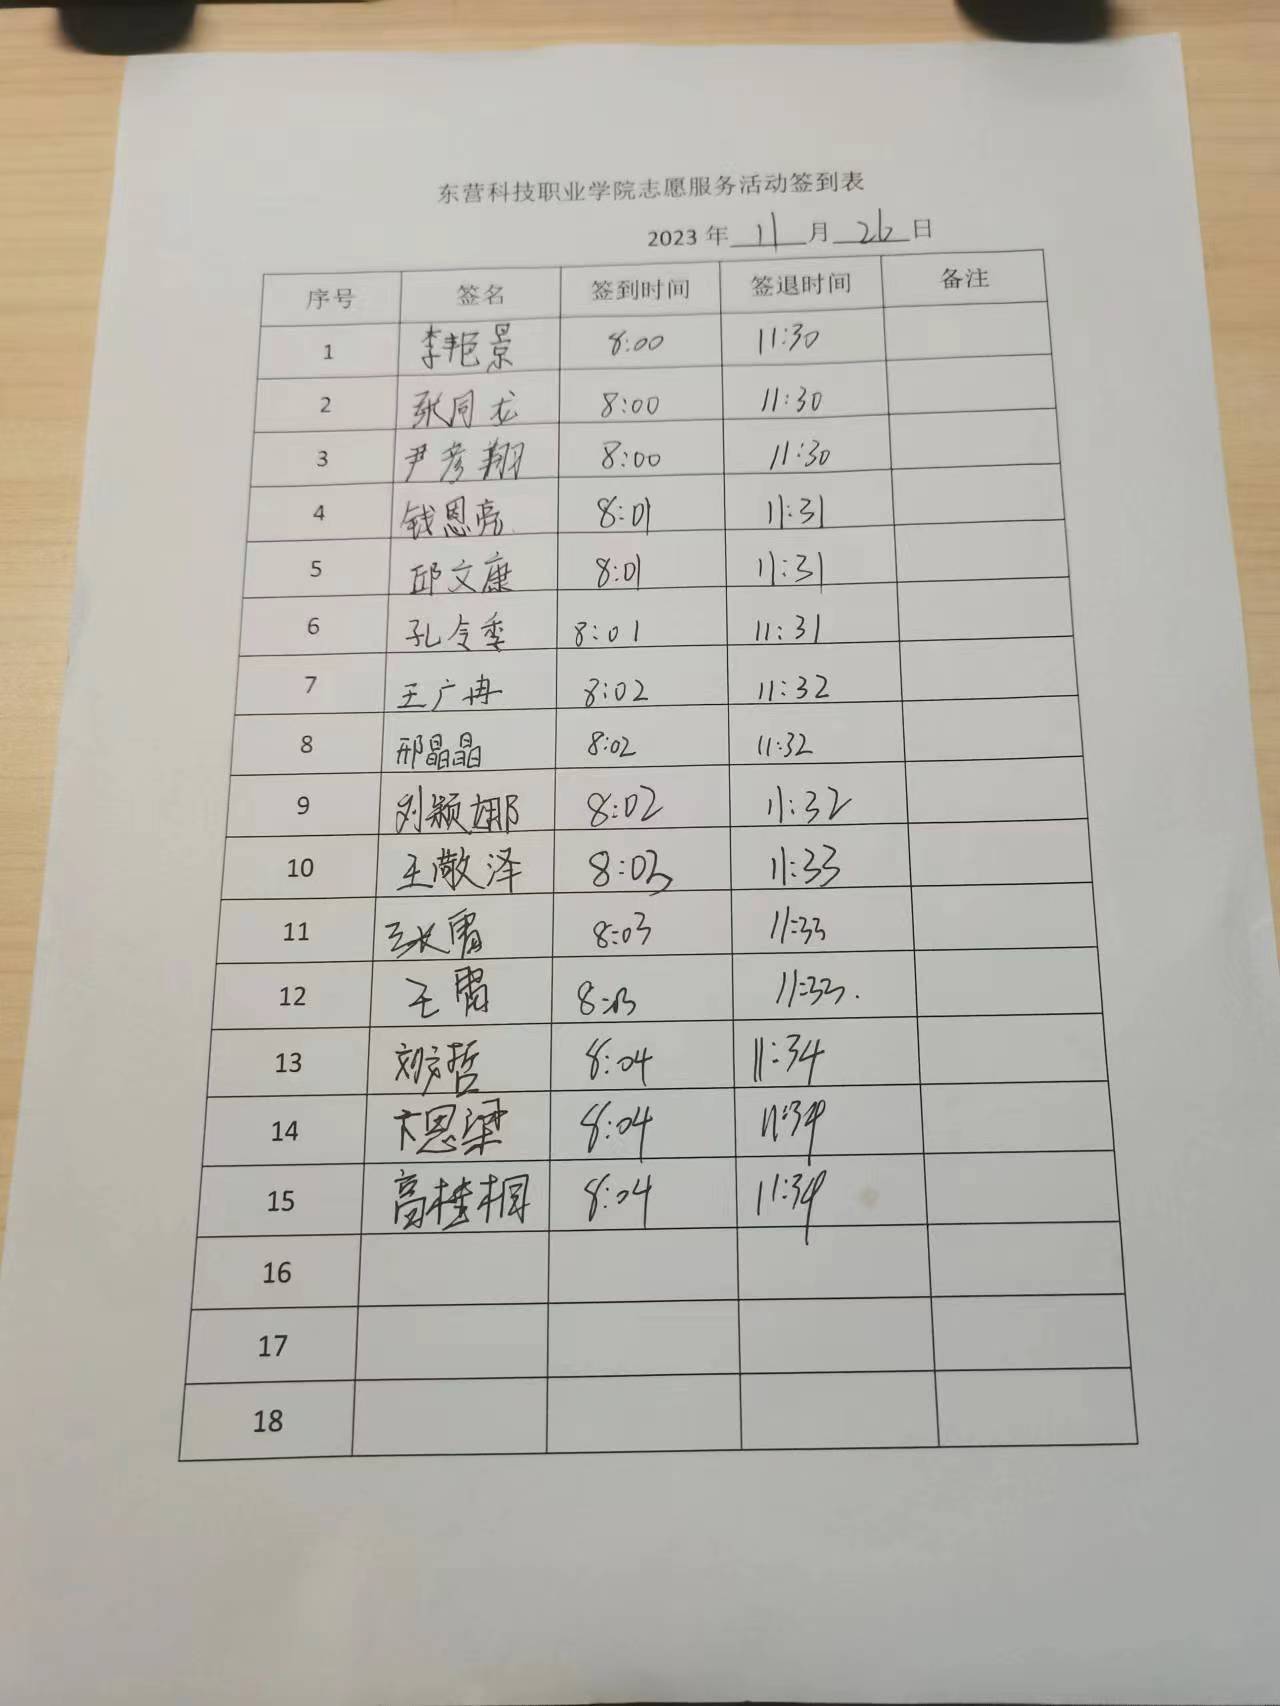 东营科技职业学院志愿服务活动签到表
2023 年 11 月 26 日
序号 签名 签到时间 签退时间 备注
1 李艳景 8:00 11:30
2 张同龙 8:00 11:30
3 尹彦翔 8:00 11:30
4 钱恩亮 8:01 11:31
5 邱文康 8:01 11:31
6 孔令季 8:01 11:31
7 王广冉 8:02 11:32
8 邢晶晶 8:02 11:32
9 刘颖娜 8:02 11:32
10 王敬泽 8:03 11:33
11 8:03 11:33
12 王霄 8:03 11:33.
13 哲 8:04 11:34
14 卞恩梁 8:04 11:34
15 高桂桐 8:04 11:34
16
17
18